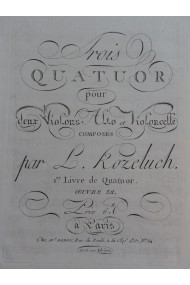 Trois
QUATUOR
pour
deux Violons Alto et Violoncelle
COMPOSÉS
par L. Kozeluch.
1er Livre de Quatuor.
ŒUVRE 32.
Prix
à Paris
Chez